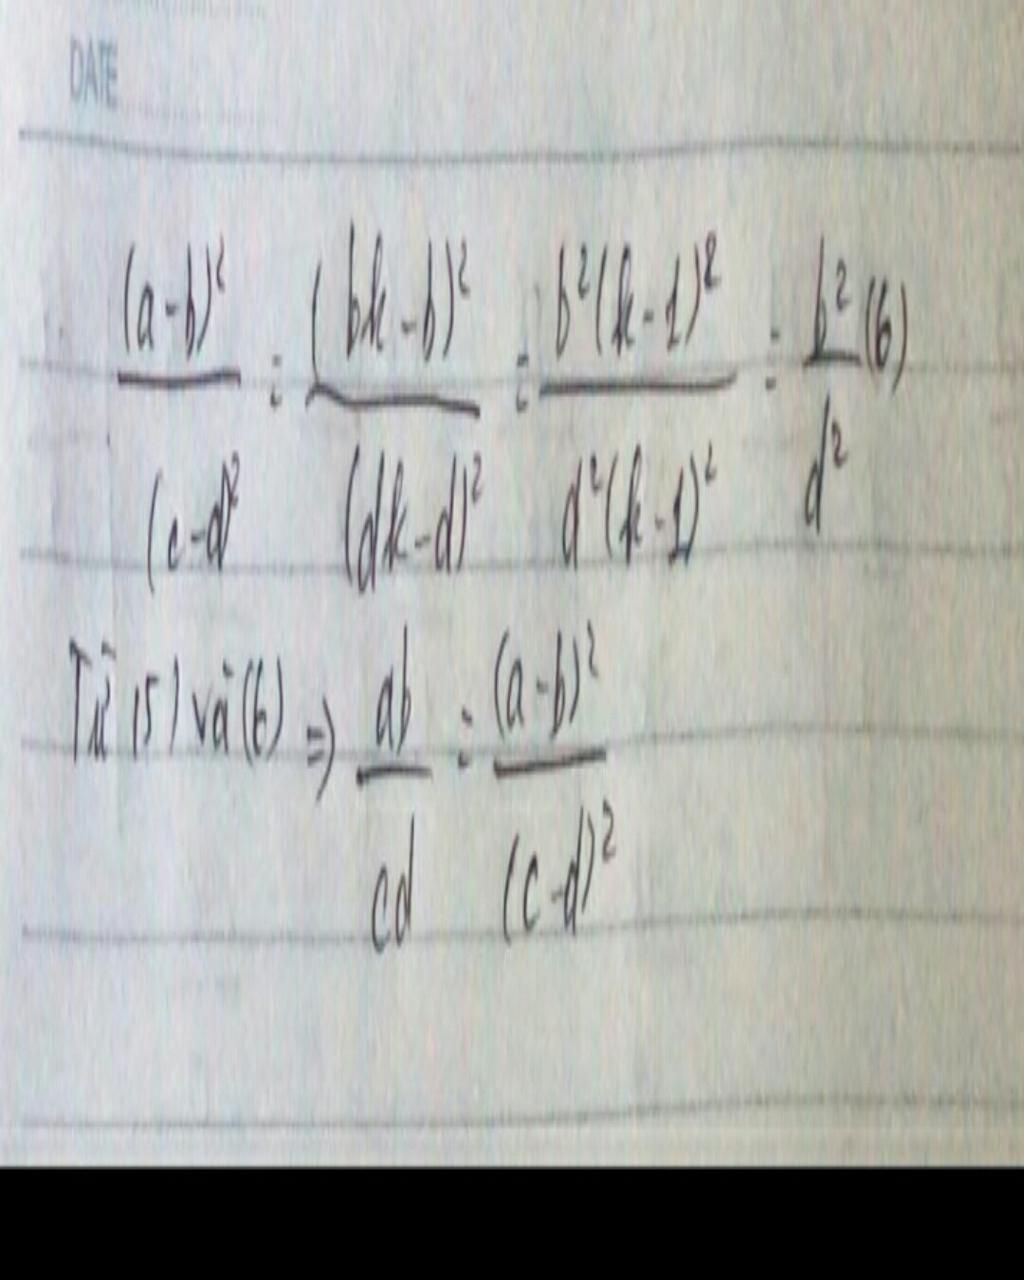 DATE
(a-b)²/(c-d)² = (bk-b)²/(dk-d)² = b²(k-1)²/d²(k-1)² = b²/d² (6)
Từ (5) và (6) => ab/cd = (a-b)²/(c-d)²